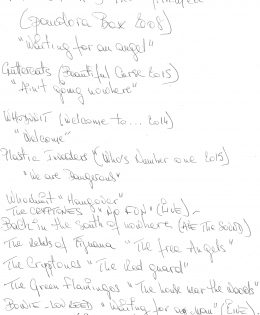 (Pandora Box 2008)
"Waiting for an angel"
Guttercats (Beautiful Curse 2015)
"Ain't going nowhere"
WHODUNIT (Welcome to... 2014)
"Welcome"
Plastic Invaders (Who's Number one 2015)
"We are Dangerous"
Whodunit "Hangover"
THE CRYPTONES "NO FUN" (LIVE)
Back in the South of nowhere
The of Tijuana "The free Angels"
The Cryptones "The Red guard"
The Green Flamingos "The house near the woods"
BOWIE - LOU REED "Waiting for a man" (LIVE).